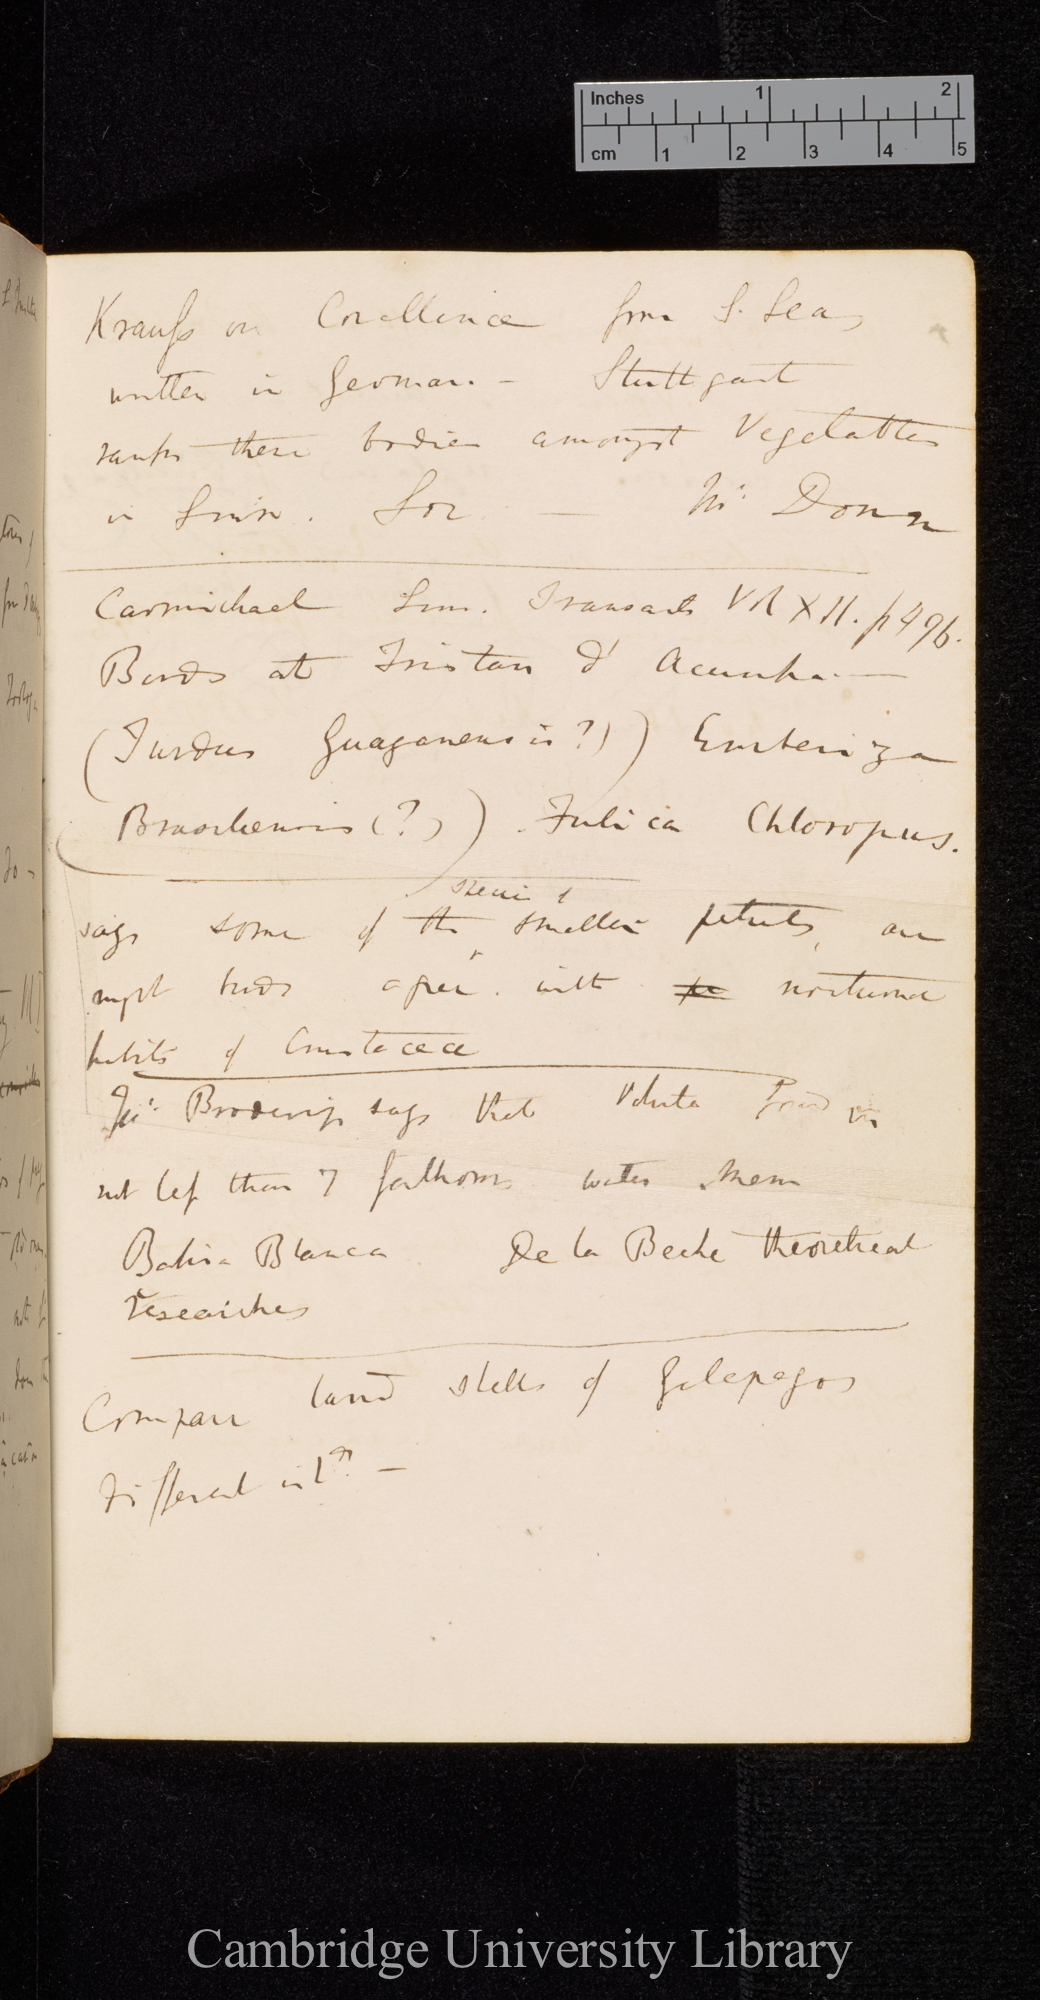 Inches 1 2
cm 1 2 3 4 5
Krauss on Corallinæ from S. Seas
written in German. – Stuttgart
ranks these bodies amongst Vegetables
in Linn. Soc — Mr Donn
Carmichael Linn. Transacts Vol XII. p 496.
Birds at Tristan d' Acunha. —
(Turdus Guayanensis?)) Emberiza
Brasiliensis (?)) . Fulica Chloropus.
sterni &
says some of the smaller petrels, are
night birds agree. with nocturnal
habits of Crustaceæ
Mr. Broderip says that Voluta found in
not less than 7 fathoms water. Mem
Bahia Blanca De la Beche theoretical
researches
Compare land shells of Galapagos
different isl ds. –
Cambridge University Library